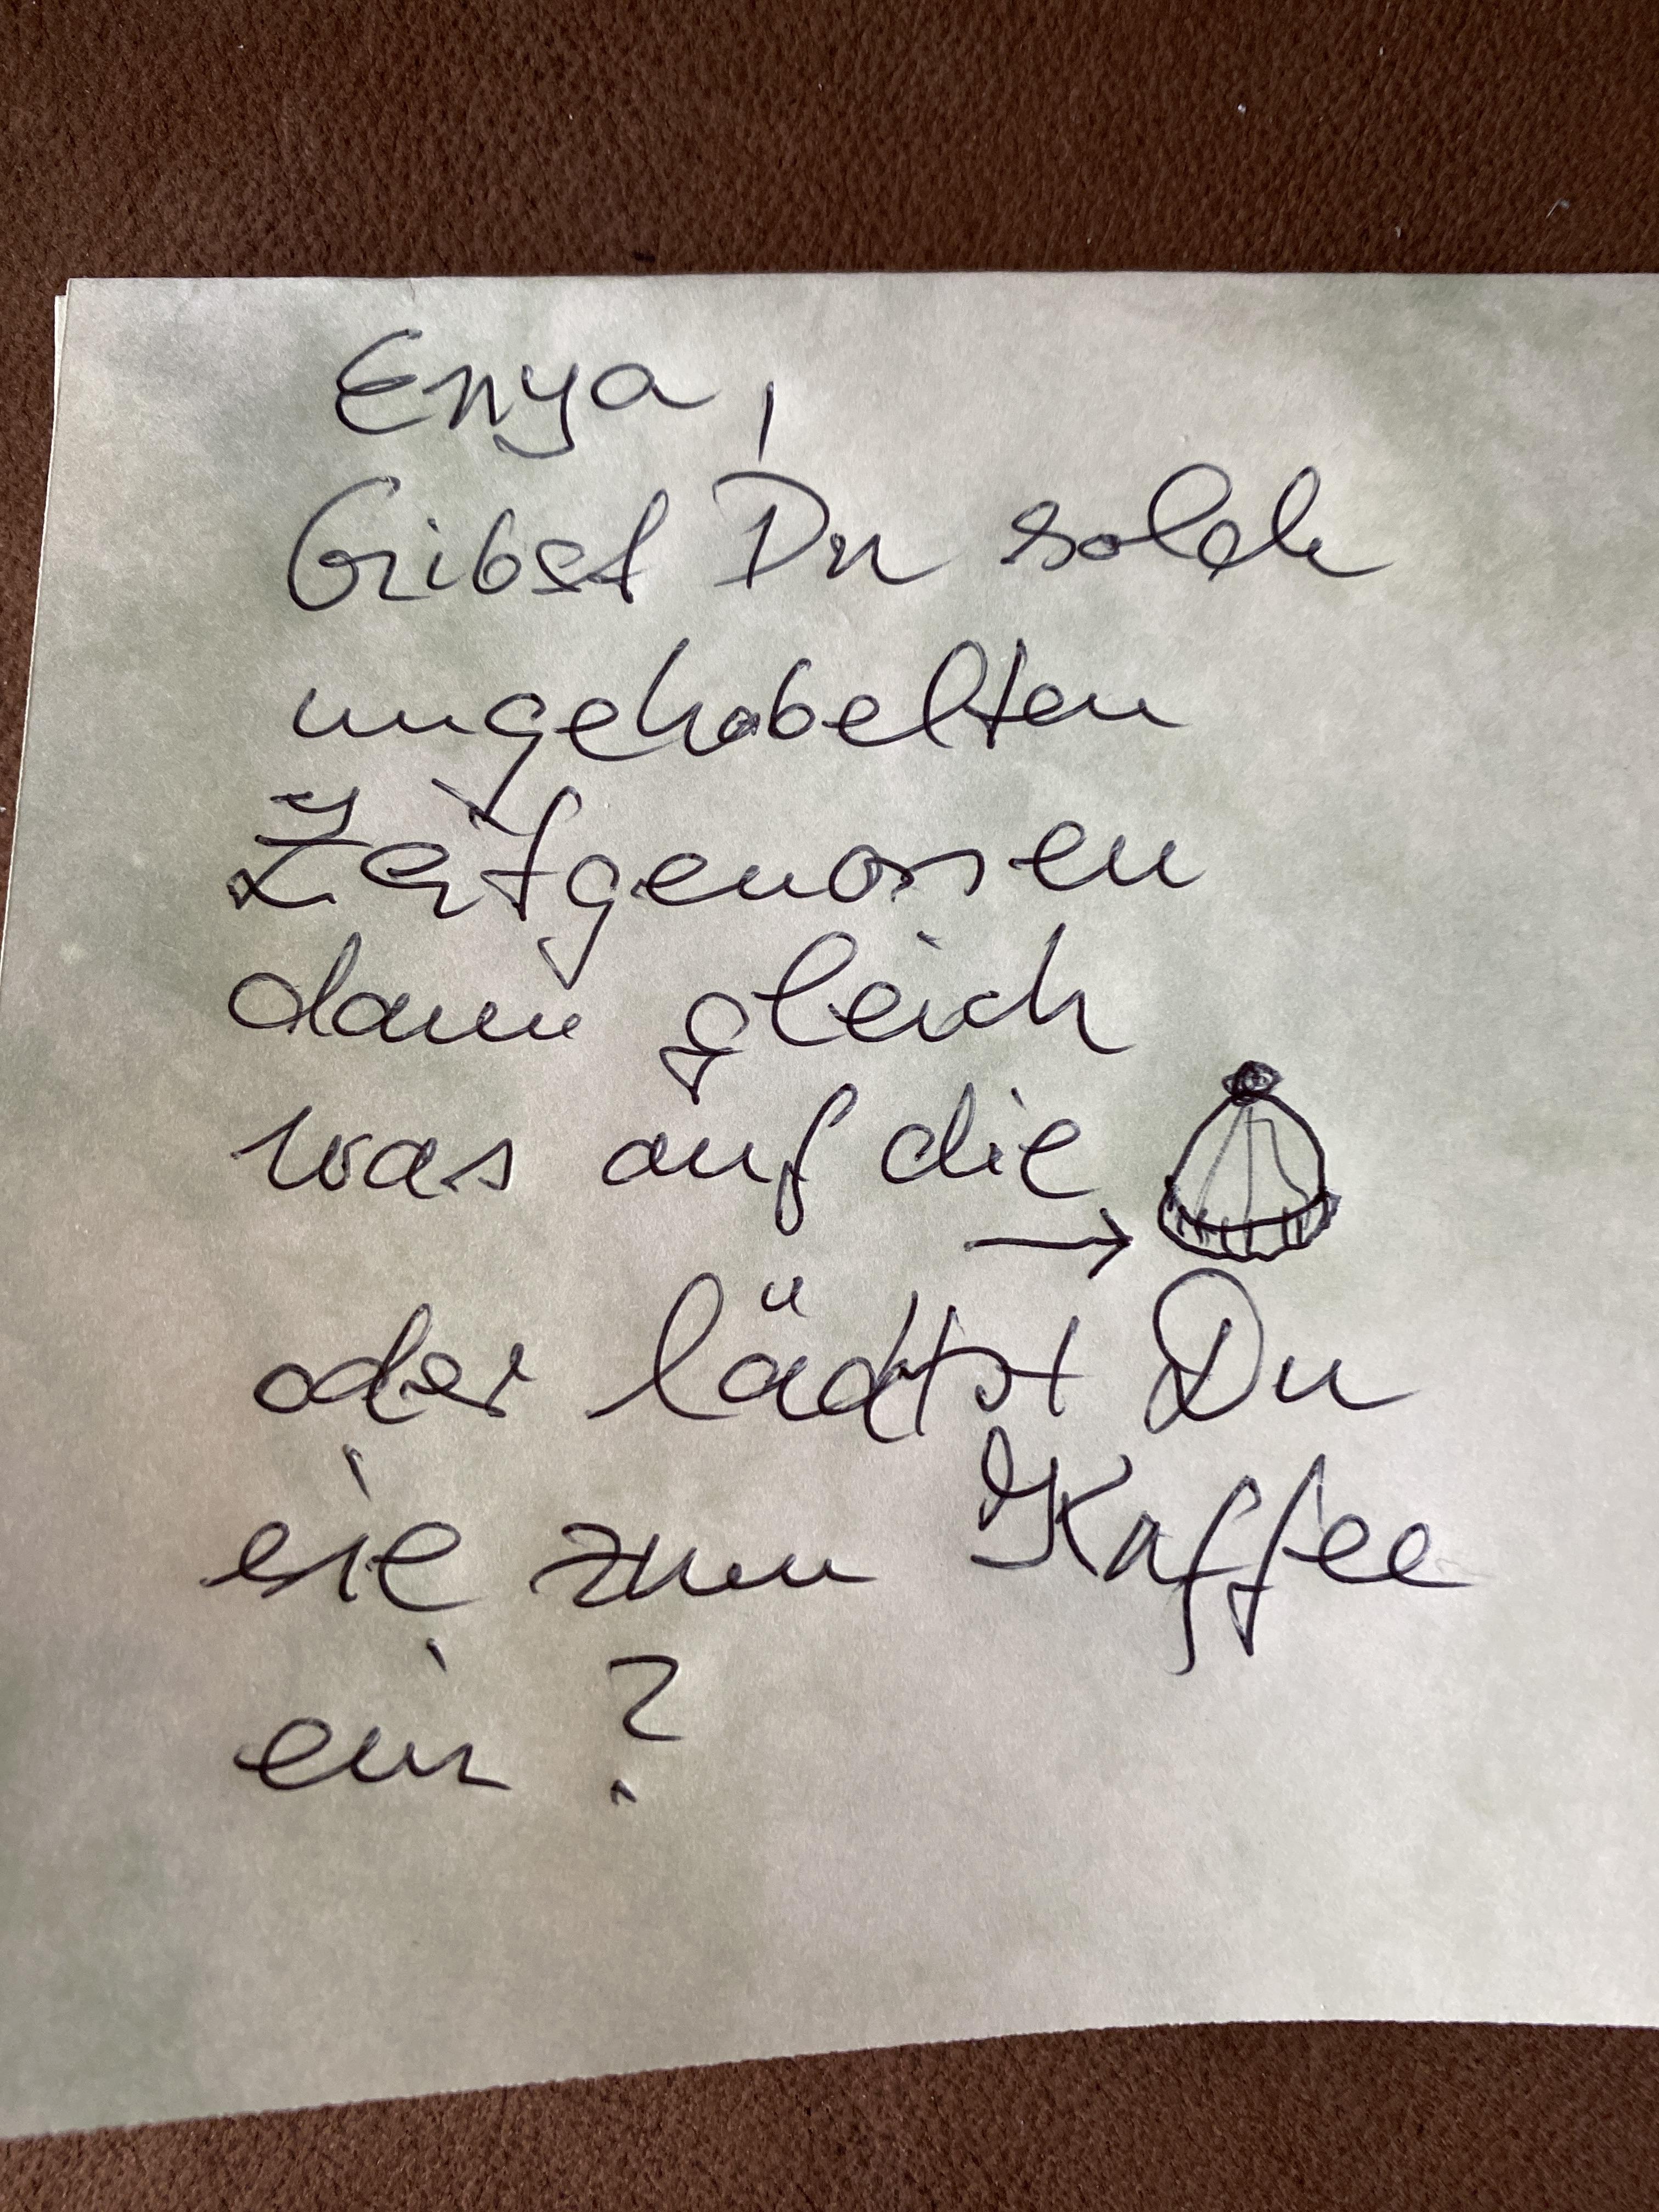 Enya,
Gibst Du solch
ungehobelten
Zeitgenossen
dann gleich
was auf die
→
oder lädtst Du
sie zum Kaffee
ein?